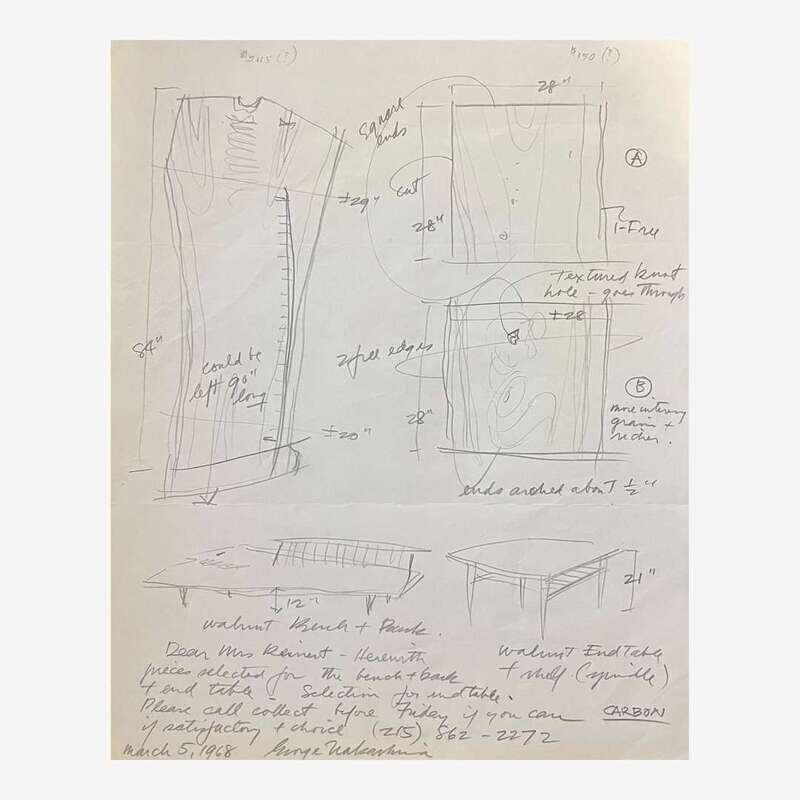 $245 (?)
$150 (?)
28"
Square
ends
A
cut
±29"
28"
1-Free
textured knot
hole - goes through
±28
84"
2 free edges
could be
left 90"
long
B
28"
more interesting
grain +
richer.
±20"
ends arched about 1/2"
12"
21"
walnut Bench + Back.
Dear Mrs Reinert - Herewith
walnut End Table
+ shelf. (spindle)
pieces selected for the bench + back
+ end table - Selection for end table.
Please call collect before Friday if you can
CARBON
if satisfactory + choice (215) 862-2272
March 5, 1968 George Nakashima